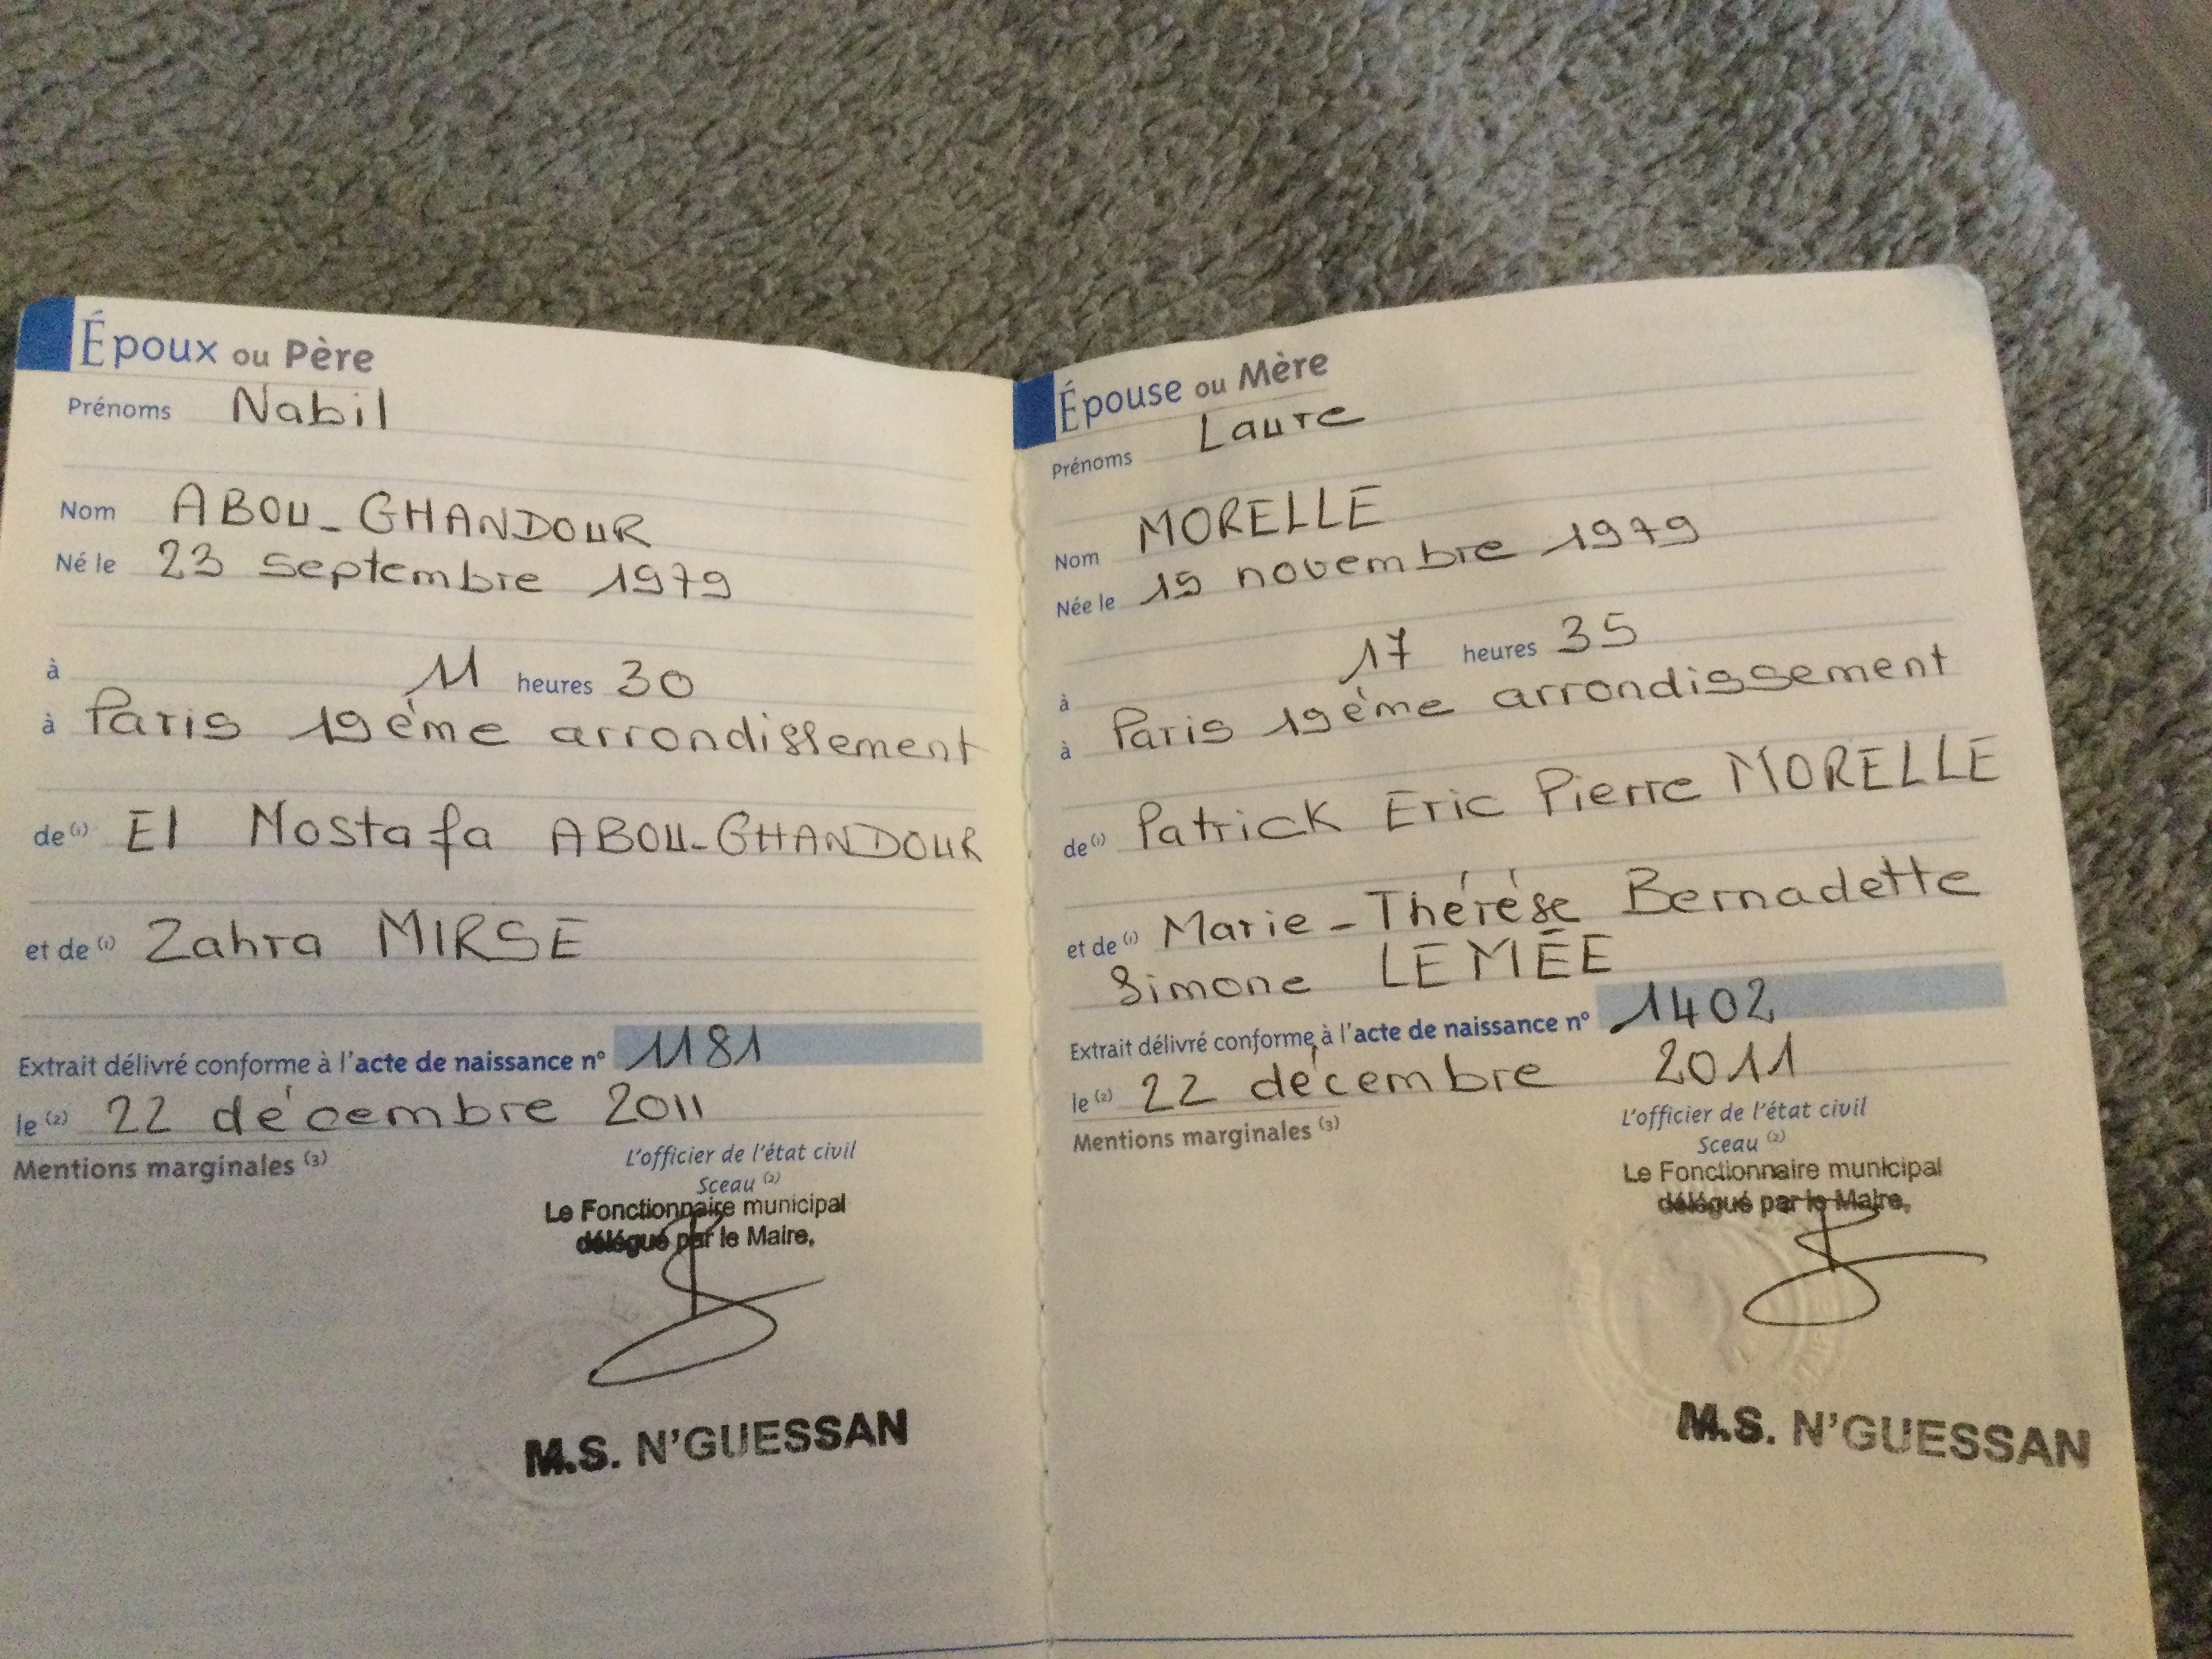 Époux ou Père
Prénoms Nabil
Nom ABOU-GHANDOUR
Né le 23 septembre 1979
à 11 heures 30
à Paris 19ème arrondissement
de (1) El Mostafa ABOU-GHANDOUR
et de (1) Zahra MIRSE
Extrait délivré conforme à l'acte de naissance n° 1181
le (2) 22 décembre 2011
Mentions marginales (3)
L'officier de l'état civil
Sceau (2)
Le Fonctionnaire municipal
délégué par le Maire,
M.S. N'GUESSAN
Épouse ou Mère
Prénoms Laure
Nom MORELLE
Née le 15 novembre 1979
à 17 heures 35
à Paris 19ème arrondissement
de (1) Patrick Eric Pierre MORELLE
et de (1) Marie-Thérèse Bernadette
Simone LEMÉE
Extrait délivré conforme à l'acte de naissance n° 1402
le (2) 22 décembre 2011
Mentions marginales (3)
L'officier de l'état civil
Sceau (2)
Le Fonctionnaire municipal
délégué par le Maire,
M.S. N'GUESSAN